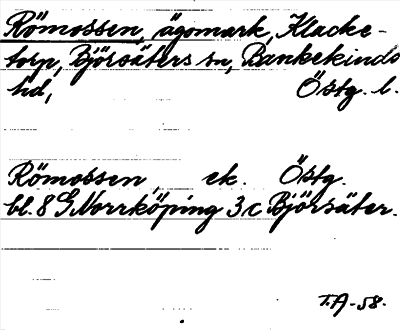 Römossen, ägomark, Klacke-
torp, Björsäters sn, Bankekinds
hd, Östg. l.
Römossen ek. Östg.
bl. 8 G Norrköping 3 c Björsäter.
T.A-58.